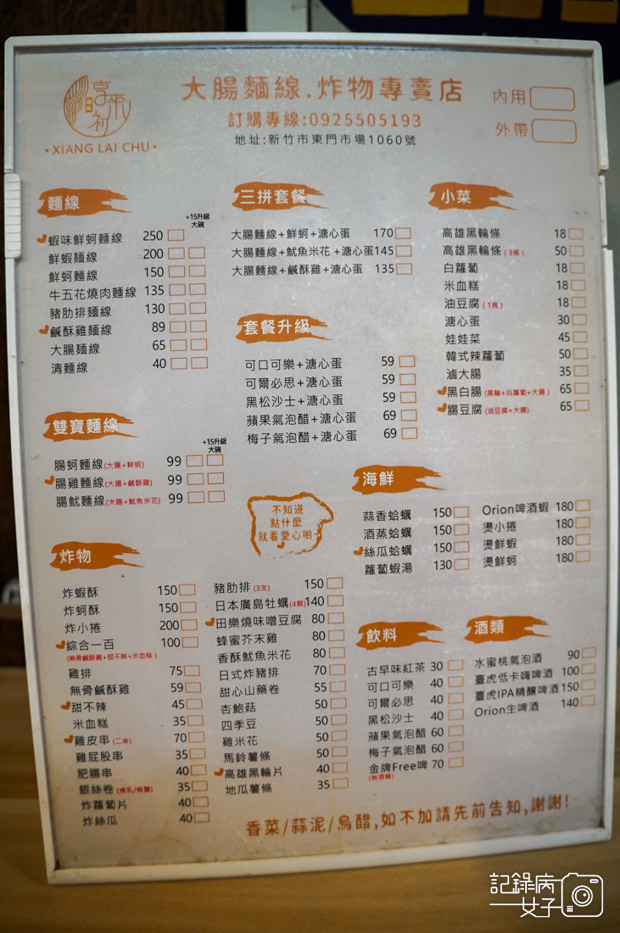 享來初
XIANG LAI CHU
大腸麵線.炸物專賣店
訂購專線:0925505193
地址:新竹市東門市場1060號
內用
外帶
麵線
+15升級
大碗
蝦味鮮蚵麵線 250
鮮蝦麵線 200
鮮蚵麵線 150
牛五花燒肉麵線 135
豬肋排麵線 130
鹹酥雞麵線 89
大腸麵線 65
清麵線 40
雙寶麵線
+15升級
大碗
腸蚵麵線(大腸+鮮蚵) 99
腸雞麵線(大腸+鹹酥雞) 99
腸魷麵線(大腸+魷魚米花) 99
三拼套餐
大腸麵線+鮮蚵+溏心蛋 170
大腸麵線+魷魚米花+溏心蛋 145
大腸麵線+鹹酥雞+溏心蛋 135
套餐升級
可口可樂+溏心蛋 59
可爾必思+溏心蛋 59
黑松沙士+溏心蛋 59
蘋果氣泡醋+溏心蛋 69
梅子氣泡醋+溏心蛋 69
小菜
高雄黑輪條 18
高雄黑輪條(3條) 50
白蘿蔔 18
米血糕 18
油豆腐(1塊) 18
溏心蛋 30
娃娃菜 45
韓式辣蘿蔔 50
滷大腸 35
黑白腸(黑輪+白蘿蔔+大腸) 65
腸豆腐(油豆腐+大腸) 65
不知道
點什麼
就看愛心喲
海鮮
蒜香蛤蠣 150
酒蒸蛤蠣 150
絲瓜蛤蠣 150
蘿蔔蝦湯 130
Orion啤酒蝦 180
燙小捲 180
燙鮮蝦 180
燙鮮蚵 180
炸物
炸蝦酥 150
炸蚵酥 150
炸小捲 200
綜合一百 100
(無骨鹹酥雞+甜不辣+米血糕)
雞排 75
無骨鹹酥雞 59
甜不辣 45
米血糕 35
雞皮串(二串) 70
雞屁股串 35
肥腸串 40
銀絲卷(煉乳/椒鹽) 35
炸蘿蔔片 40
炸絲瓜 40
豬肋排(3支) 150
日本廣島牡蠣(4顆) 140
田樂燒味噌豆腐 80
蜂蜜芥末雞 80
香酥魷魚米花 80
日式炸豬排 70
甜心山藥卷 55
杏鮑菇 50
四季豆 50
雞米花 50
馬鈴薯條 50
高雄黑輪片 40
地瓜薯條 35
飲料
古早味紅茶 30
可口可樂 40
可爾必思 40
黑松沙士 40
蘋果氣泡醋 60
梅子氣泡醋 60
金牌Free啤 70
(無酒精)
酒類
水蜜桃氣泡酒 90
臺虎低卡嗨啤酒 100
臺虎IPA精釀啤酒 150
Orion生啤酒 140
香菜/蒜泥/烏醋,如不加請先前告知,謝謝!
記錄病
女子